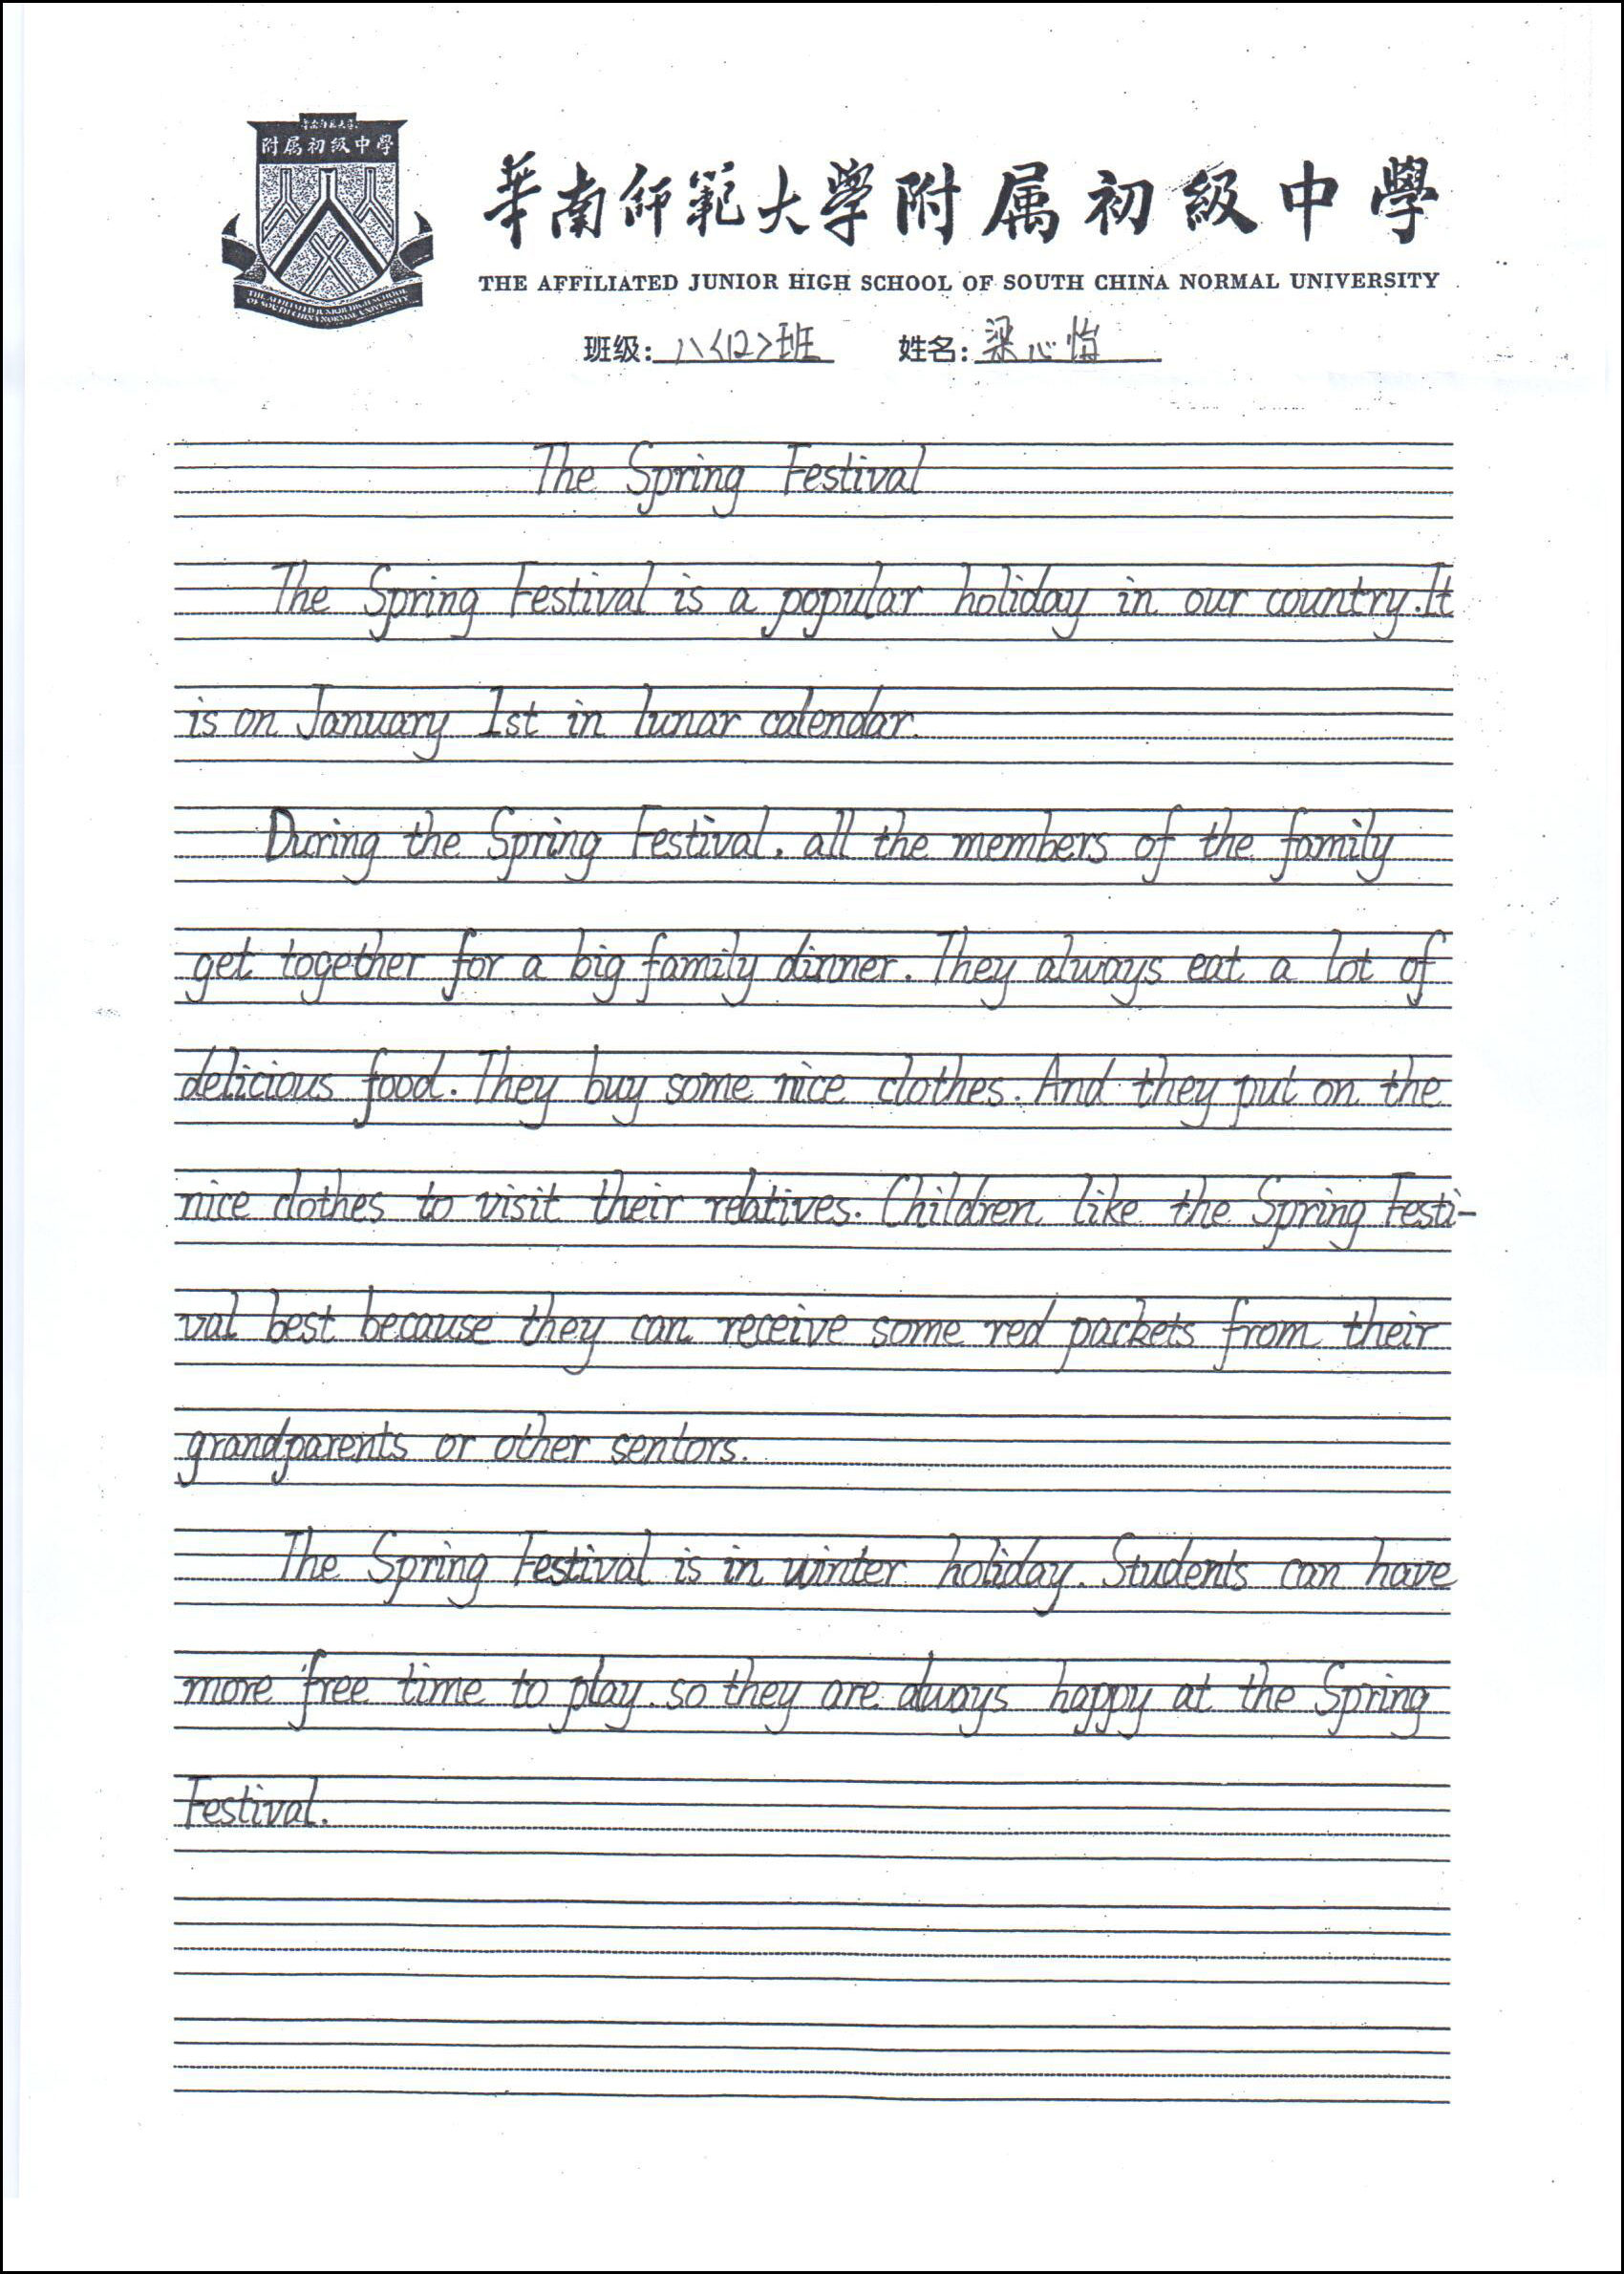 華南師範大學
附属初級中學
華南師範大學附属初級中學
THE AFFILIATED JUNIOR HIGH SCHOOL OF SOUTH CHINA NORMAL UNIVERSITY
THE AFFILIATED JUNIOR HIGH SCHOOL
OF SOUTH CHINA NORMAL UNIVERSITY
班级: 八<12>班 姓名: 梁心怡
The Spring Festival
The Spring Festival is a popular holiday in our country. It
is on January 1st in lunar calendar.
During the Spring Festival, all the members of the family
get together for a big family dinner. They always eat a lot of
delicious food. They buy some nice clothes. And they put on the
nice clothes to visit their relatives. Children like the Spring Festi-
val best because they can receive some red packets from their
grandparents or other sentors.
The Spring Festival is in winter holiday. Students can have
more free time to play. so they are always happy at the Spring
Festival.